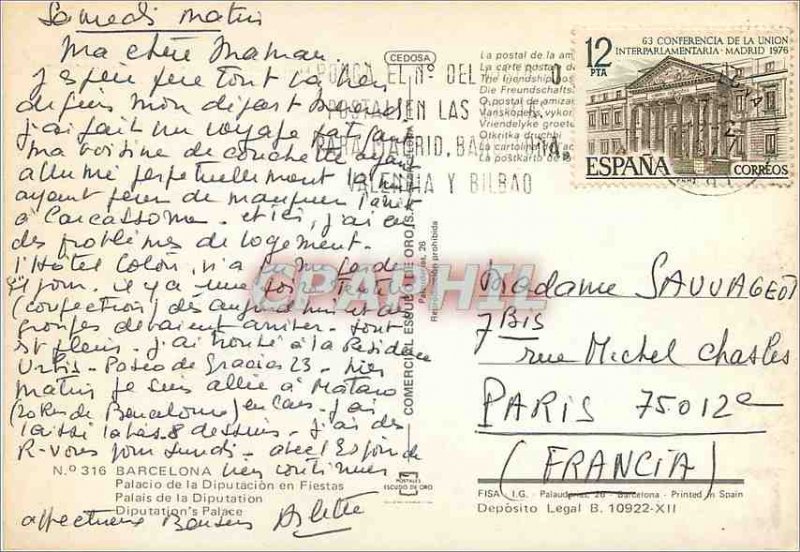 Samedi matin
Ma chère Maman
J'espère que tout va bien
depuis mon départ
j'ai fait un voyage
ma voisine de couchette ayant
allumé perpétuellement la
ayant peur de manquer l'arrêt
à Carcassonne. et ici, j'ai eu
des problèmes de logement.
l'Hôtel Colón, n'a pu me garder
jour. il y a une foire textile
(confection) dès aujourd'hui et des
groupes devaient arriver. tout
est plein. j'ai trouvé à la Residencia
Urbis - Paseo de Gracia 23 - hier
matin je suis allée à Mataro
(20 km de Barcelone) en car. j'ai
laissé là-bas 8 dessins - j'ai des
R-Vous pour Lundi - avec l'Espoir de
bien continuer
affectueux Baisers Arlette
N.º 316 BARCELONA
Palacio de la Diputación en Fiestas
Palais de la Diputation
Diputation's Palace
CEDOSA
PONGA EL Nº DEL
POSTAL EN LAS
PARA MADRID, BARNA,
VALENCIA Y BILBAO
La postal de la
La carte postale
The friendship
Die Freundschafts
O postal de amiza
Vanskapens vykor
Vriendelyke groete
Otkritka druchbi
La cartolina
La postkarto de
COMERCIAL ESCUDO DE ORO, S.
Palaudarias, 26
Reproducción prohibida
POSTALES
ESCUDO DE ORO
12
PTA
63 CONFERENCIA DE LA UNION
INTERPARLAMENTARIA - MADRID 1976
ESPAÑA
CORREOS
CPAPHIL
Madame SAUVAGEOT
7 Bis
rue Michel Chasles
PARIS 75012e
(FRANCIA)
FISA. I.G. - Palaudarias, 26 - Barcelona - Printed in Spain
Depósito Legal B. 10922-XII